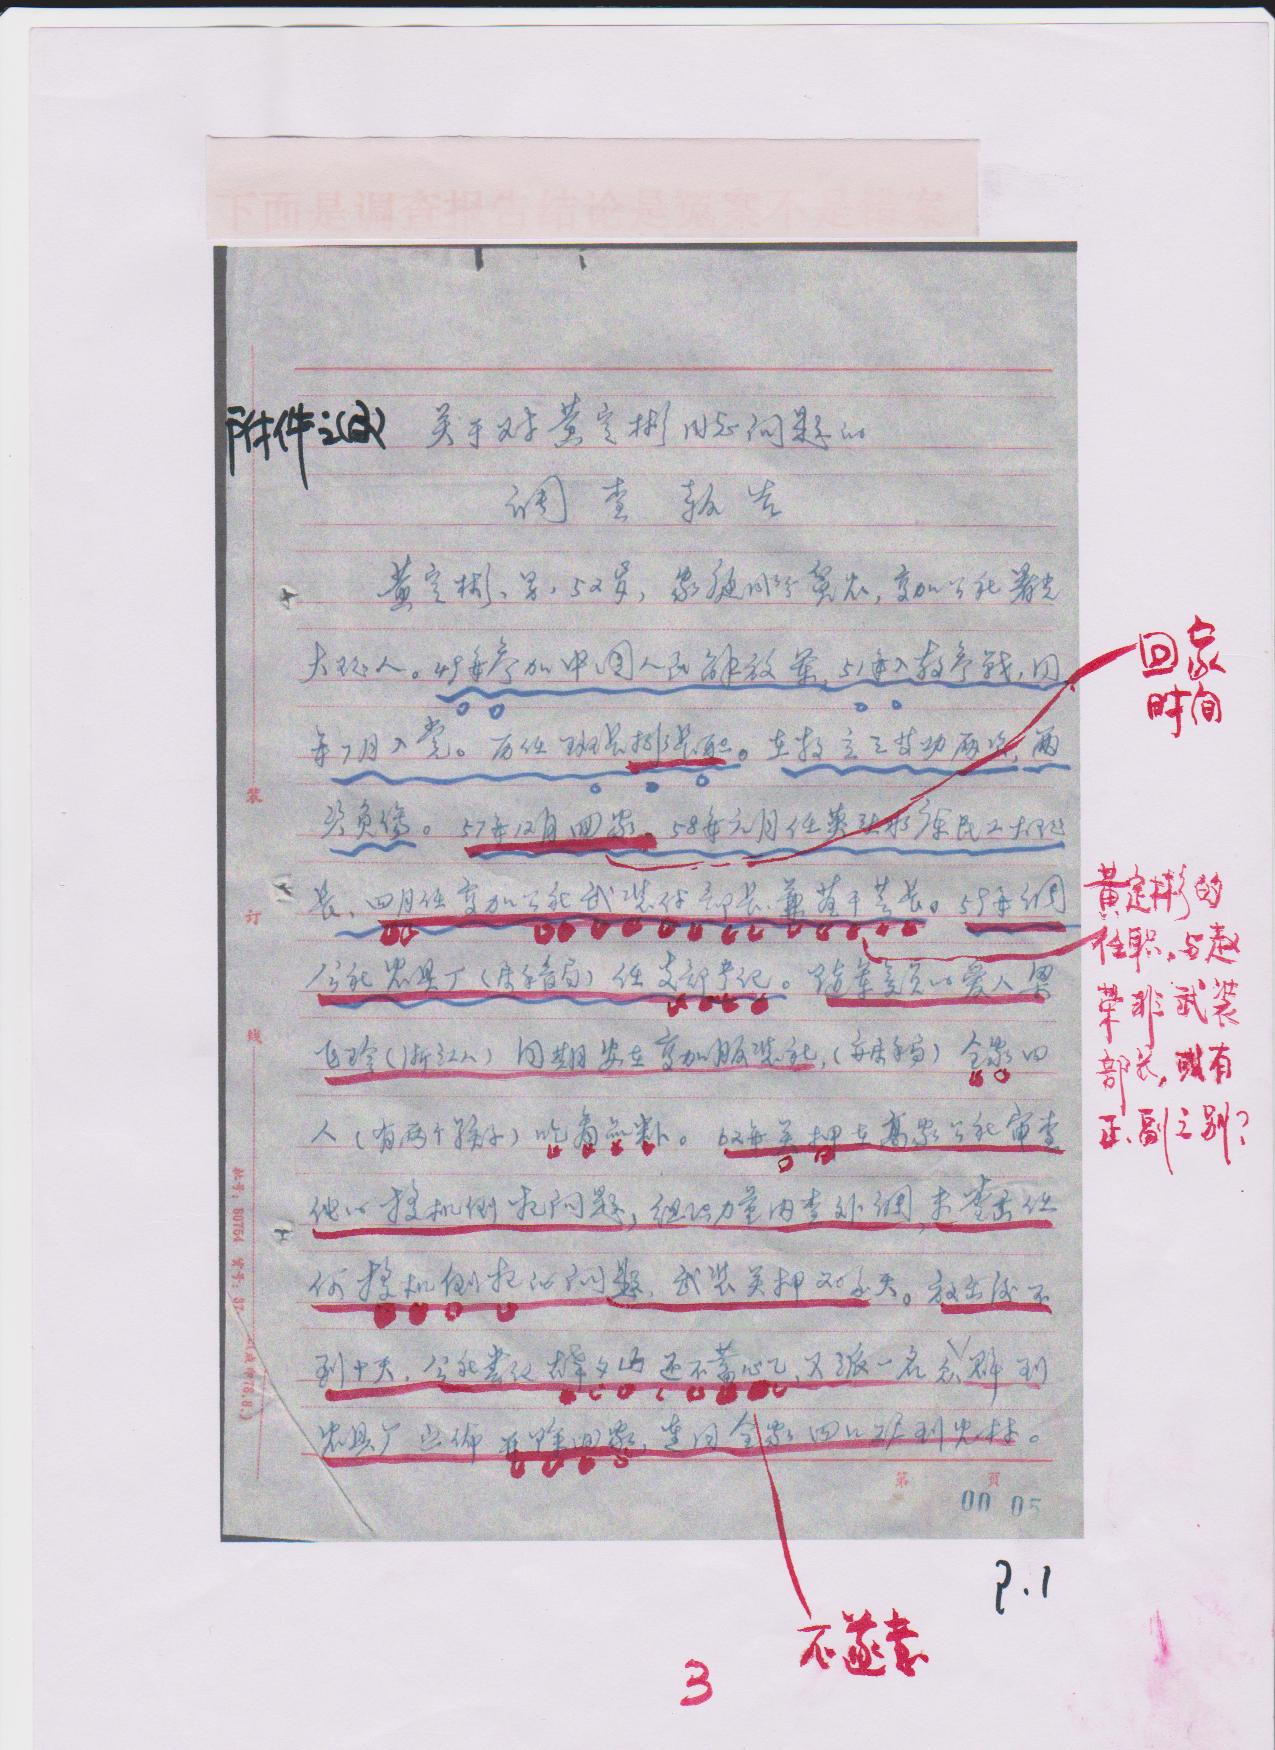 下面是调查报告结论是冤案不是错案
附件之(2)
关于对黄定彬同志问题的
调查报告
黄定彬、男、52岁，家庭成份贫农，变加公社署光
大队人。49年参加中国人民解放军，51年入朝参战，同
年7月入党。历任班长排长职。在朝立三等功两次，两
次负伤。57年12月回家。58年元月任英雄水库民工大队
长、四月任变加公社武装付部长、兼苗干营长。59年调
公社农具厂(床单局)任支部书记。随军家属的爱人
(浙江人)同期安在变加服装社，全家四
人(有两个孩子)吃商品粮。62年关押在离家公社审查
他的投机倒把问题，组织力量内查外调，未查出任
何投机倒把的问题，武装关押20多天。放出后不
到十天，公社书记还不甘心，又派一名到
农具厂宣佈开除回家，连同全家四口赶到农村。
回家
时间
黄定彬的
任职，与赵
荣非武装
部长，或有
正、副之别？
不遂意
装
订
线
第 页
00 05
P.1
3